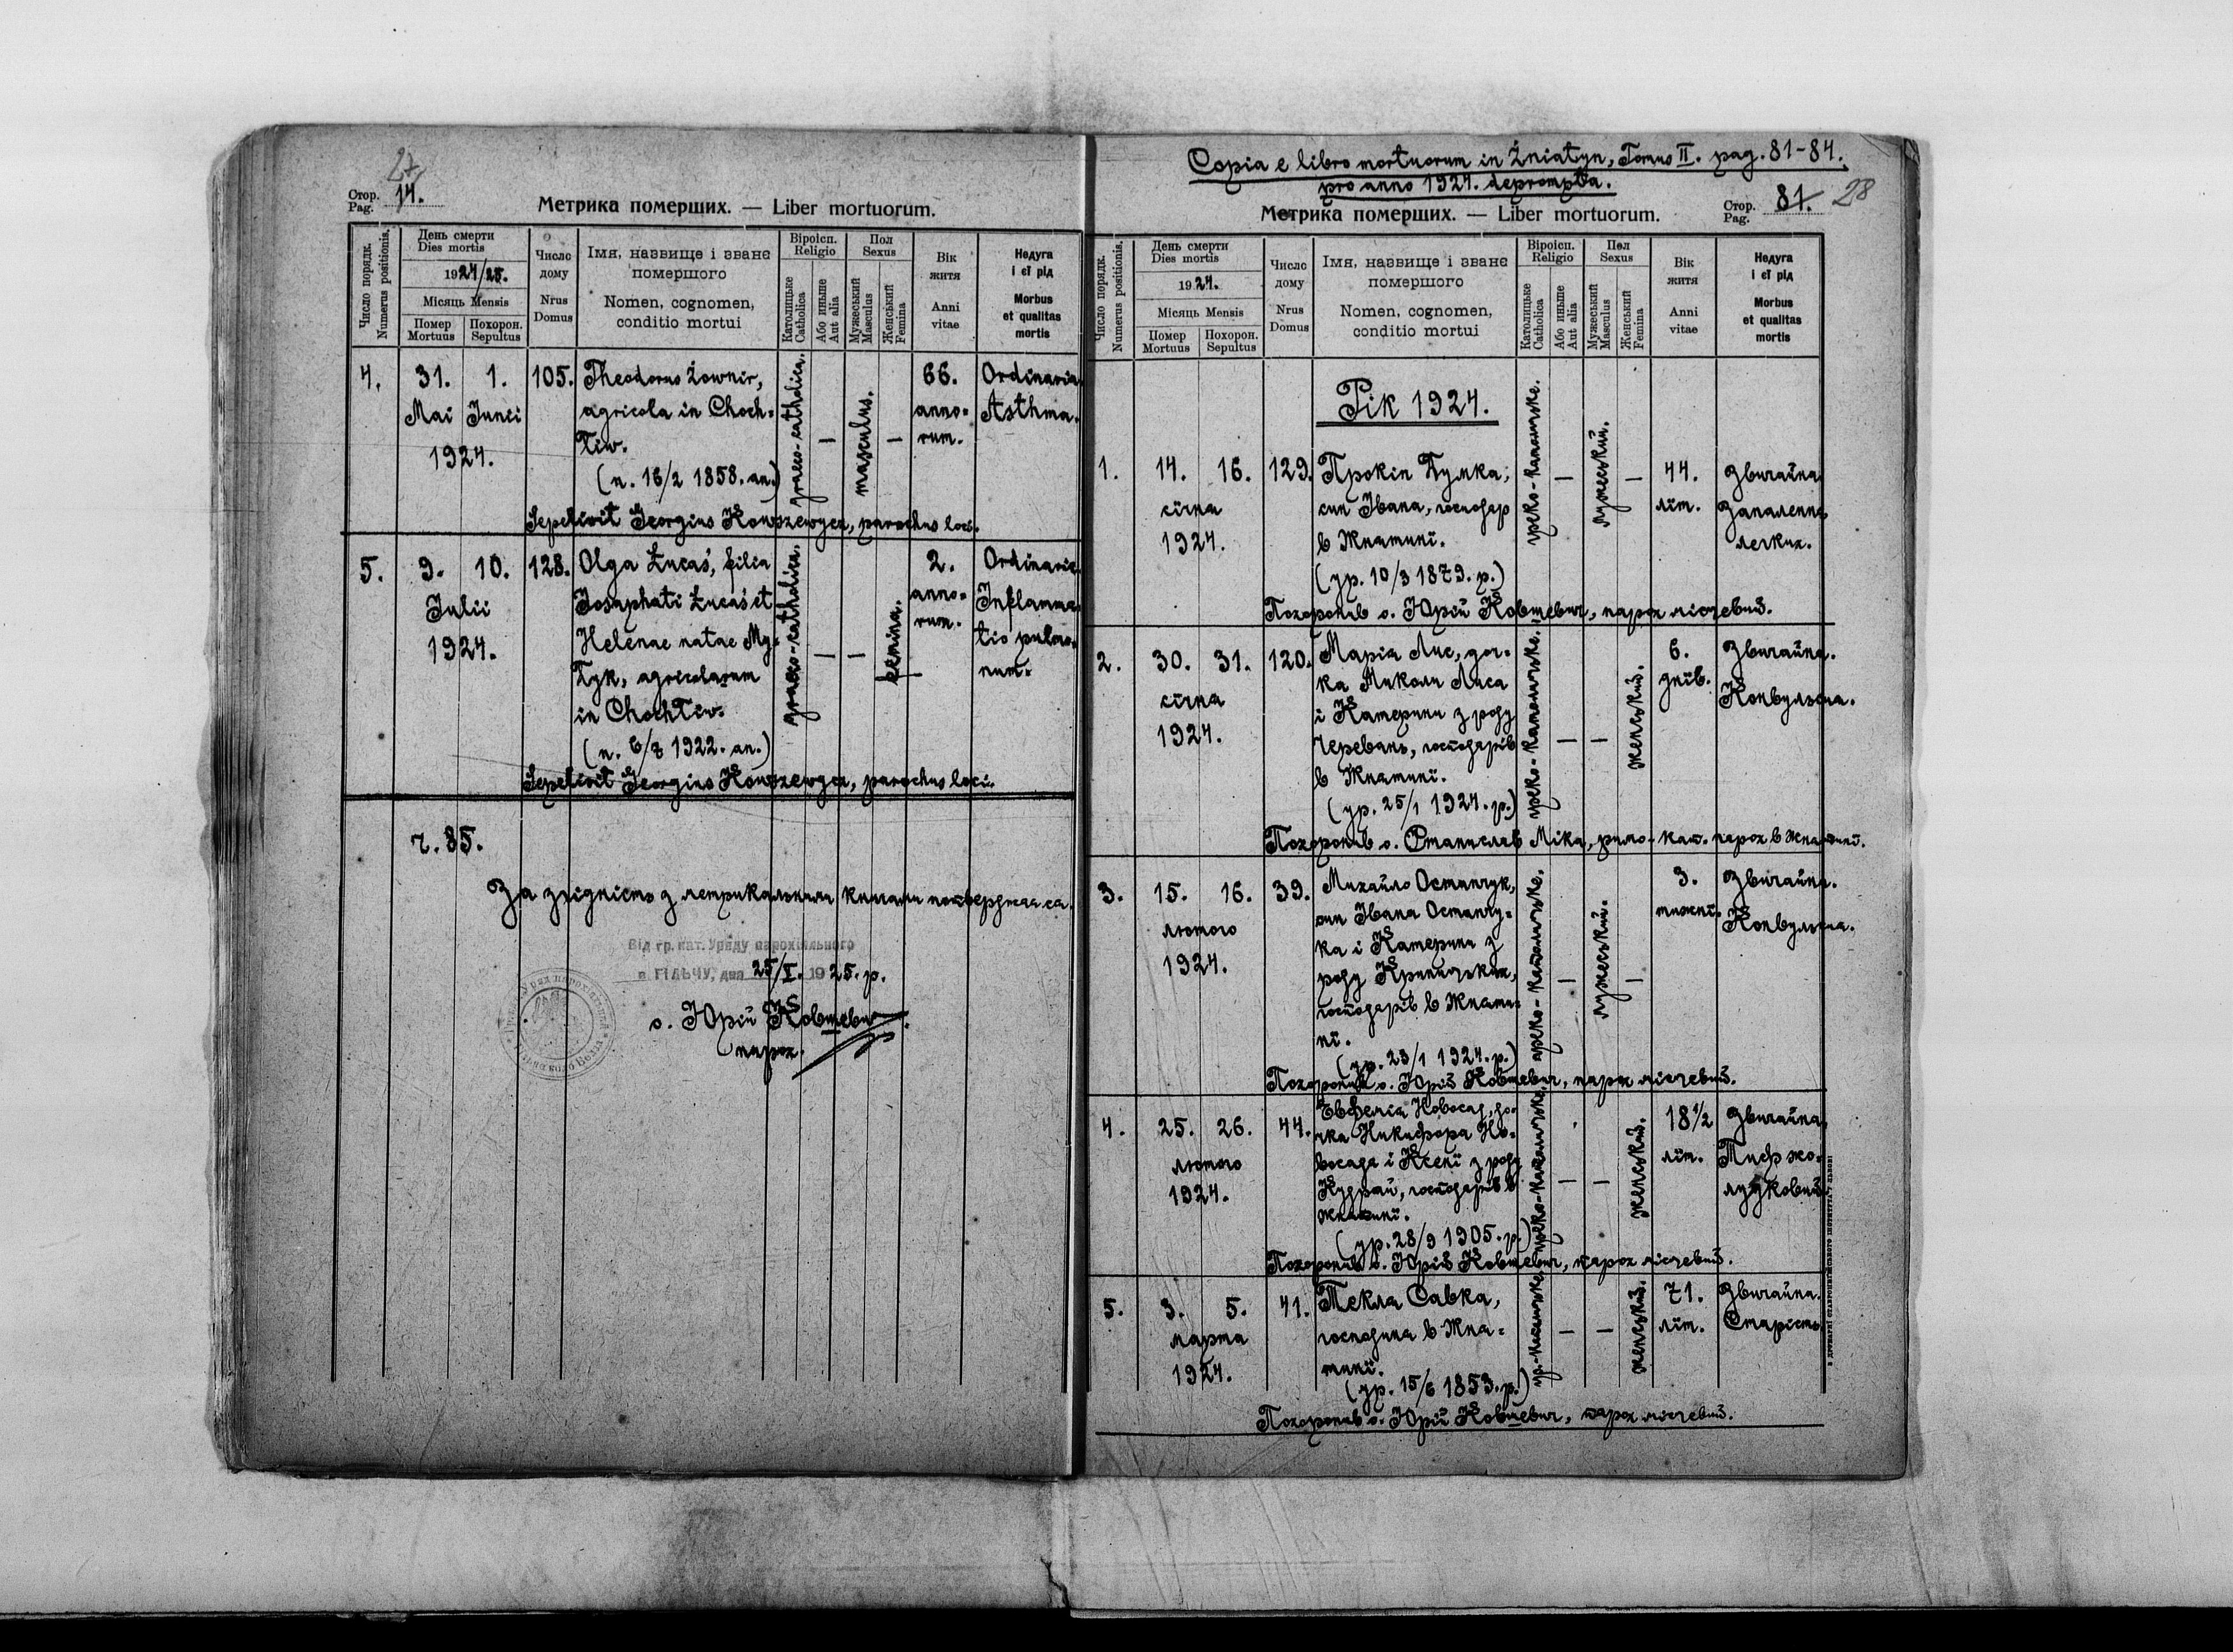 27
Стор. Pag. 14.
Метрика померших. — Liber mortuorum.
Число порядк. Numerus positionis.
День смерти Dies mortis
1924/25.
Місяць Mensis
Помер Mortuus
Похорон. Sepultus
Число дому Nrus Domus
Імя, назвище і званє помершого
Nomen, cognomen, conditio mortui
Віроісп. Religio
Католицьке Catholica
Або иньше Aut alia
Пол Sexus
Мужеський Masculus
Женський Femina
Вік житя Anni vitae
Недуга і єї рід Morbus et qualitas mortis
4. 31. 1. 105. Theodorus Żownir, 66. Ordinaria.
Mai Junii agricola in Choch= anno= Asthma.
1924. Tiw. graeco-catholica. — masculus. — rum.
(n. 16/2 1858. an.)
Sepelivit Georgius Kowszewycz, parochus loci.
5. 9. 10. 128. Olga Łucaś, filia 2. Ordinaria.
Julii Josaphati Łucaś et anno= Inflamma=
1924. Helenae natae My= rum. tio pulmo=
Tyk, agricolarum graeco-catholica. — — femina. num.
in Chochtiw.
(n. 6/8 1922. an.)
Sepelivit Georgius Kowszewycz, parochus loci.
ч. 85.
За згідність з метрикальними книгами потверджаєся.
Від гр. кат. Уряду парохіяльного
в ГІЛЬЧУ, дна 25/I. 1925. р.
о. Юрій Ковшевич
парох.
Copia e libro mortuorum in Żniatyn, Tomus II. pag. 81-84.
pro anno 1924. deprompta.
Метрика померших. — Liber mortuorum.
Стор. Pag. 81. 28
Число порядк. Numerus positionis.
День смерти Dies mortis
1924.
Місяць Mensis
Помер Mortuus
Похорон. Sepultus
Число дому Nrus Domus
Імя, назвище і званє помершого
Nomen, cognomen, conditio mortui
Віроісп. Religio
Католицьке Catholica
Або иньше Aut alia
Пол Sexus
Мужеський Masculus
Женський Femina
Вік житя Anni vitae
Недуга і єї рід Morbus et qualitas mortis
Рік 1924.
1. 14. 16. 129. Прокіп Думка, 44. Звичайна.
січня син Івана, господар літ. Запаленнє
1924. в Жнятині. греко-католицьке. — мужеський. — легких.
(ур. 10/3 1879. р.)
Похоронив о. Юрій Ковшевич, парох місцевий.
2. 30. 31. 120. Марія Лис, доч= 6. Звичайна.
січня ка Миколи Лиса днів. Конвульсия.
1924. і Катерини з роду
Черевань, господарів греко-католицьке. — — женський.
в Жнятині.
(ур. 25/1 1924. р.)
Похоронив о. Станислав Міка, римо-кат. парох в Жнятині.
3. 15. 16. 39. Михайло Остапчук, 3. Звичайна.
лютого син Івана Остапчу= тижні. Конвульсия.
1924. ка і Катерини з
роду греко-католицьке. — мужеський. —
господарів в Жняти=
ні.
(ур. 23/1 1924. р.)
Похоронив о. Юрій Ковшевич, парох місцевий.
4. 25. 26. 44. Евфемія Новосад, до= 18 1/2 Звичайна.
лютого чка Никифора Но= літ. Тиф жо=
1924. восада і Ксені з роду лудковий.
Кудрай, господарів в греко-католицьке. — — женський.
Жнятині.
(ур. 28/9 1905. р.)
Похоронив о. Юрій Ковшевич, парох місцевий.
5. 3. 5. 41. Текля Савка, 71. Звичайна.
марта господиня в Жня= літ. Старість.
1924. тині. гр.-католицьке. — — женський.
(ур. 15/6 1853. р.)
Похоронив о. Юрій Ковшевич, парох місцевий.